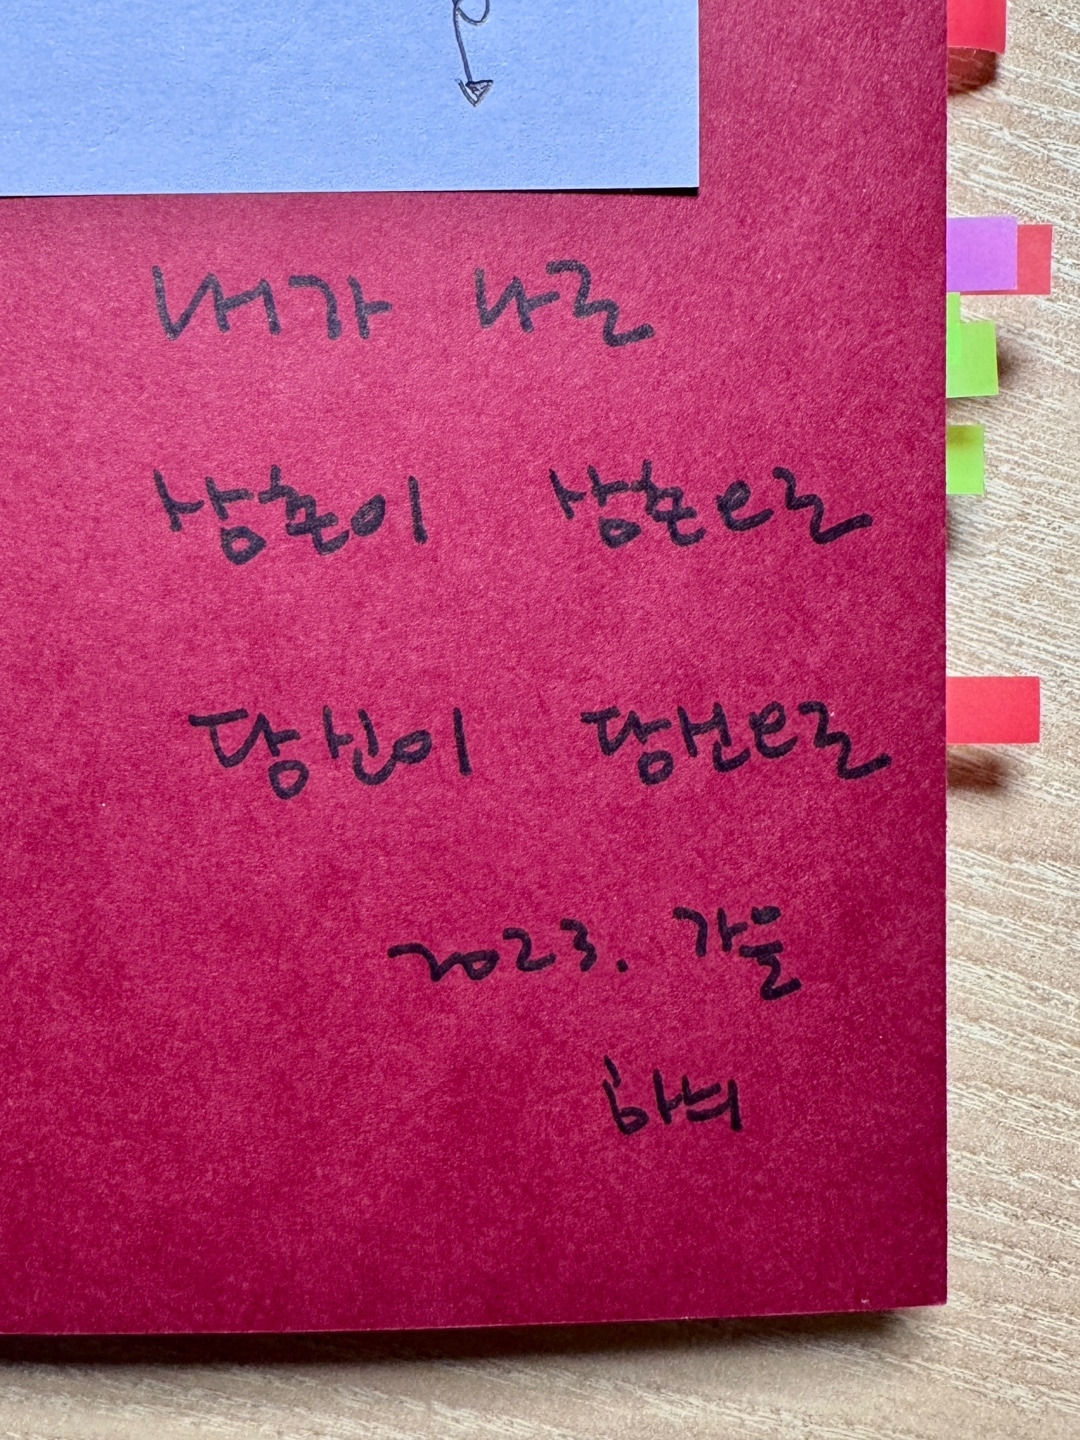 내가 나를
삼촌이 삼촌으로
당신이 당신으로
2023. 가을
하늬